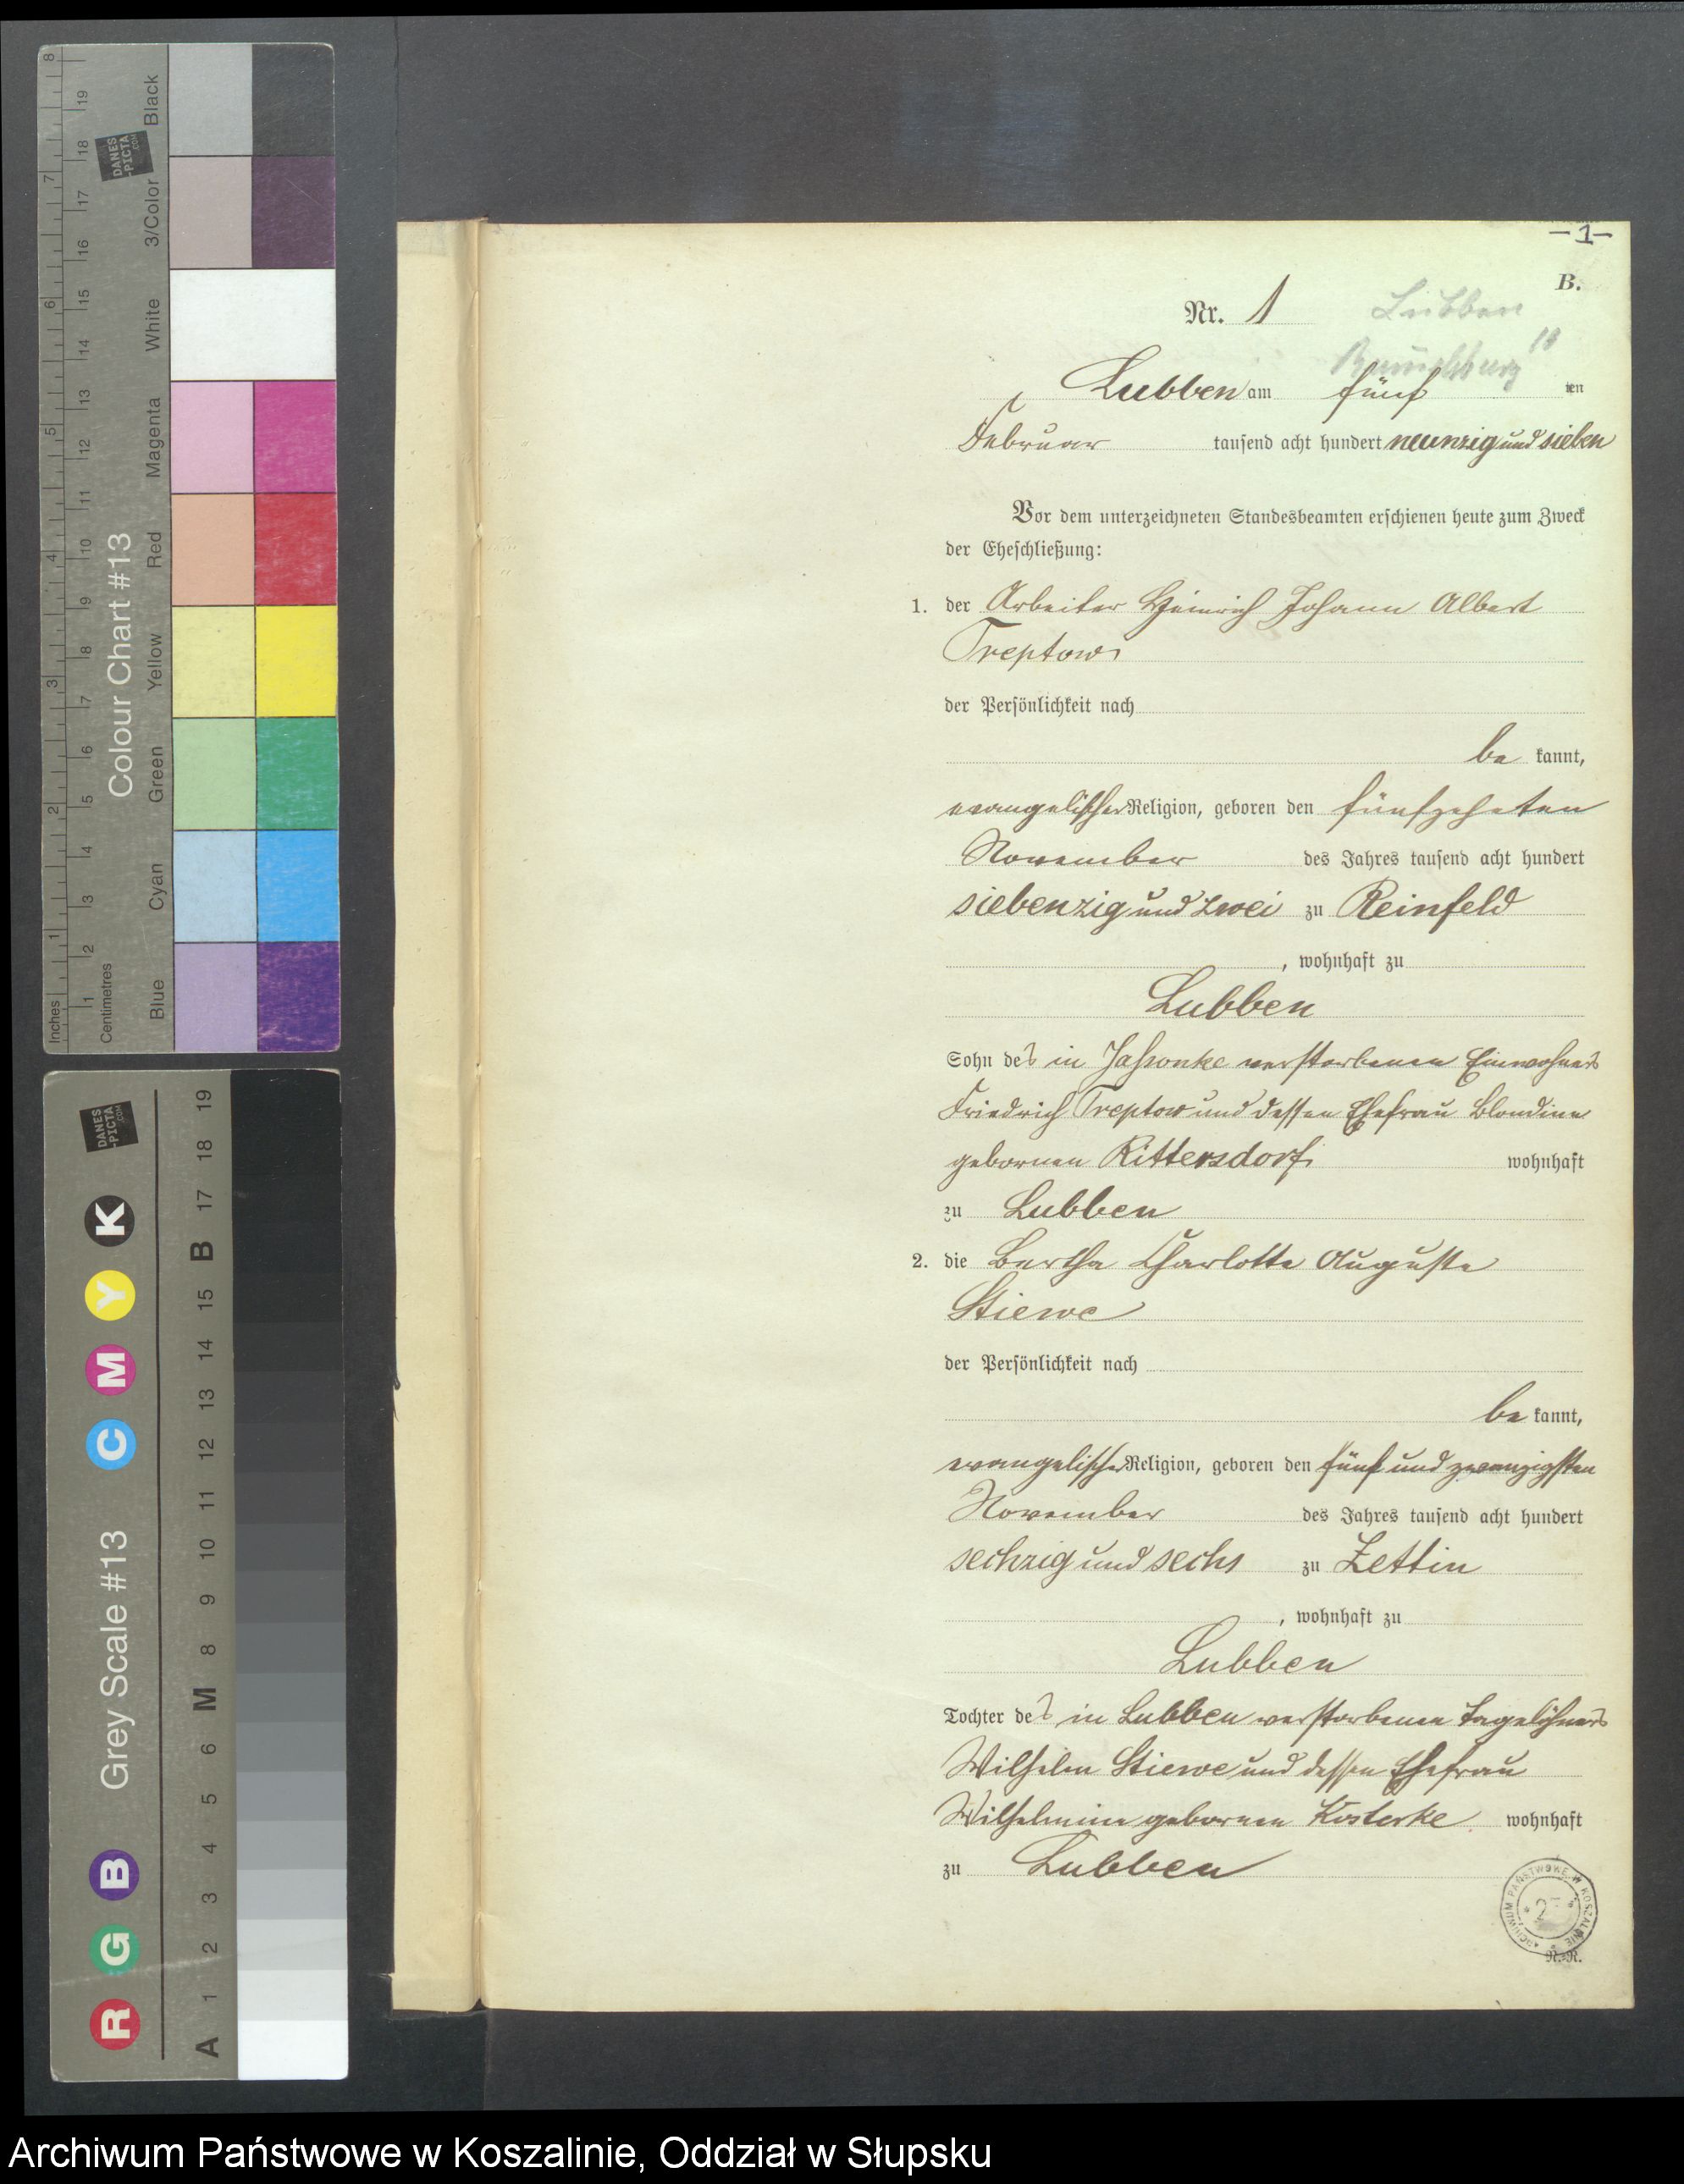 8
19
Black
DANES
-PICTA
.COM
18
7
17
3/Color
16
6
15
White
14
13
5
Magenta
12
11
4
10
Red
Colour Chart #13
9
8
Yellow
3
7
6
Green
2
5
4
Cyan
3
1
2
Blue
1
Inches
Centimetres
DANES
-PICTA
.COM
19
18
17
K
B
16
15
Y
14
M
13
12
C
11
10
Grey Scale #13
9
8
M
6
5
4
B
3
G
2
1
R
A
—1—
B.
Nr. 1
Lübben
Lubben am fünf ten
Februar tausend acht hundert neunzig und sieben
Vor dem unterzeichneten Standesbeamten erschienen heute zum Zweck
der Eheschließung:
1. der Arbeiter Heinrich Johann Albert
Treptow
der Persönlichkeit nach
be kannt,
evangelischer Religion, geboren den fünfzehnten
November des Jahres tausend acht hundert
siebenzig und zwei zu Reinfeld
, wohnhaft zu
Lubben
Sohn des in verstorbenen Einwohners
Friedrich Treptow und dessen Ehefrau Blondine
gebornen Rittersdorf wohnhaft
zu Lubben
2. die Bertha Charlotte Auguste
Stiewe
der Persönlichkeit nach
be kannt,
evangelischer Religion, geboren den fünf und zwanzigsten
November des Jahres tausend acht hundert
sechzig und sechs zu Zettin
, wohnhaft zu
Lubben
Tochter des in Lubben verstorbenen Tagelöhners
Wilhelm Stiewe und dessen Ehefrau
Wilhelmine gebornen Kosterke wohnhaft
zu Lubben
ARCHIWUM PAŃSTWOWE W KOSZALINIE
Archiwum Państwowe w Koszalinie, Oddział w Słupsku